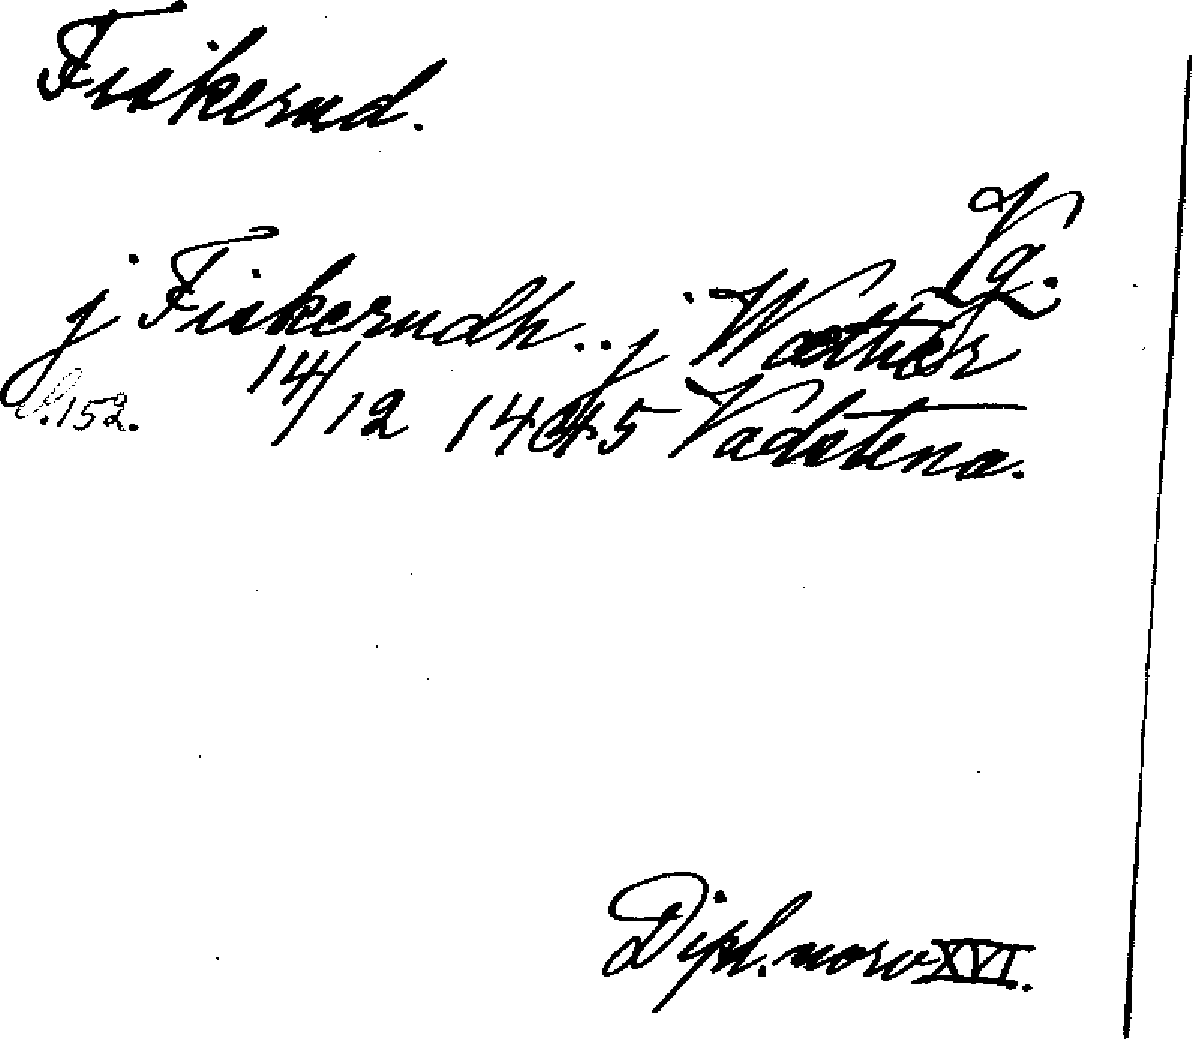 Fiskerud.
Vg.
j Fiskerudh.. j Wæthæs
s.152. 14/12 1445 Vadstena.
Dipl. norv XVI.